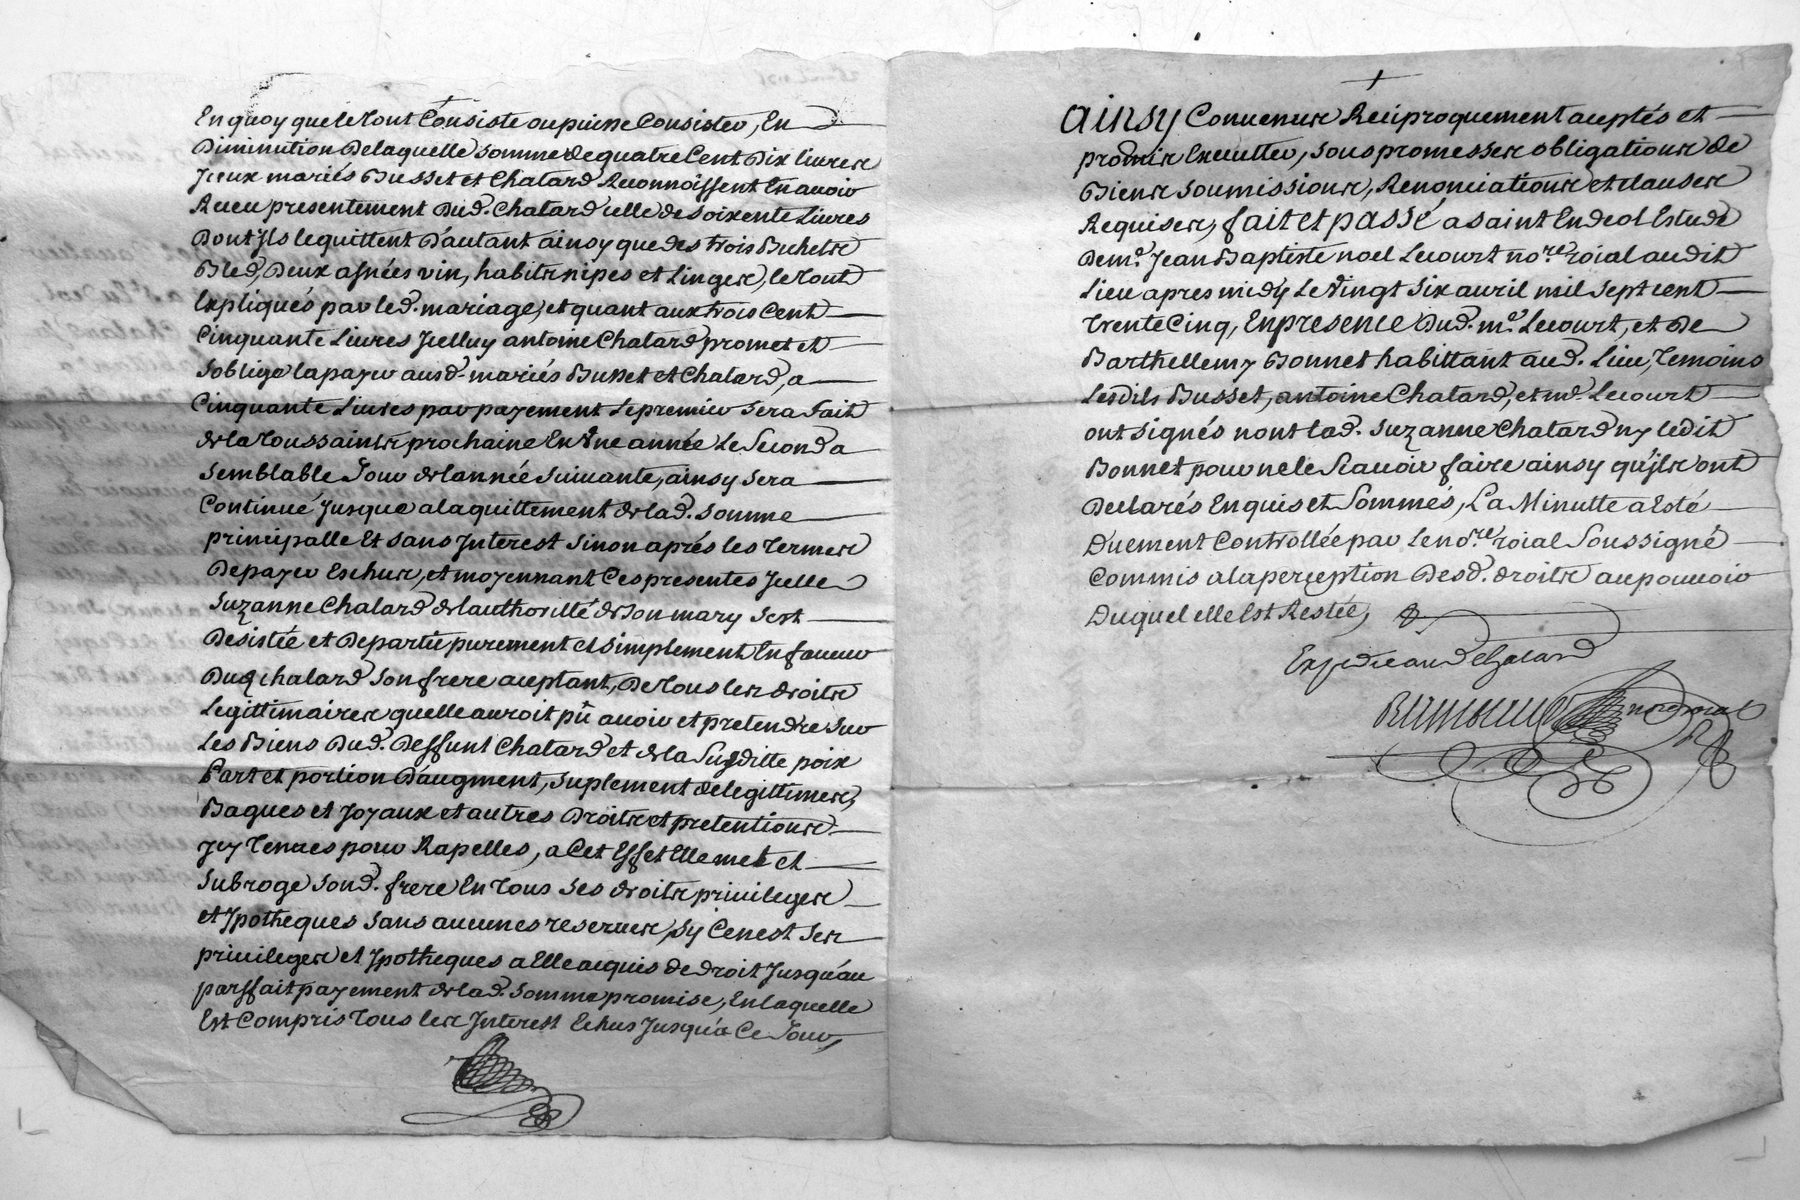 En quoy que le tout Consiste ou puisse Consister, En
Diminution De laquelle somme de quatre Cent Dix livres
Jceux mariés Busset et Chatard Reconnoissent En avoir
Receu presentement Dud. Chatard celle de soixente Livres
Dont Jls le quittent D'autant ainsy que des trois Bichets
Bled, Deux asnées vin, habits nipes et Linges, le tout
Expliqués par led. mariage, et quant aux trois Cent
Cinquante Livres Jcelluy antoine Chatard promet et
s'oblige la payer ausd. mariés Busset et Chatard, a
Cinquante Livres par payement Le premier sera fait
de la toussaints prochaine En Vne année Le Second a
semblable Jour de l'année suivante, ainsy sera
Continué Jusque a laquittement de lad. somme
principalle Et sans Jnterest sinon aprés les termes
De payer Eschus, et moyennant Ces presentes Jcelle
Suzanne Chatard de l'authoritté de Son mary s'est
Desistée et Departie purement et simplement En faveur
Dud. Chatard son frere aceptant, De tous les droits
Legittimaires quelle auroit pû avoir et pretendre sur
Les Biens Dud. Deffunt Chatard et de la Susditte poix
Part et portion D'augment, suplement de legittimes,
Bagues et Joyaux et autres Droits et pretentions
Jcy tenues pour Rapelles, a Cet Effet Elle met et
Subroge Sond. frere En tous Ses droits privileges
et Jpotheques sans aucunes reserves, sy Ce n'est ses
privileges et Jpotheques a Elle acquis de droit Jusqu'au
parffait payement de lad. somme promise, En laquelle
Est Compris tous les Jnterest Echus Jusqu'a Ce Jour,
ainsy Convenus Reciproquement aceptés et
promis Executter, sous promesses obligations de
Biens soumissions, Renonciations et clauses
Requises, fait et passé a saint Endeol Estude
De me. Jean Baptiste noel Lecourt nore. roial audit
Lieu apres midy Le Vingt Six avril mil sept cent
trente Cinq, En presence Dud. me. Lecourt, et De
Barthellemy Bonnet habittant aud. Lieu, temoins
Lesdits Busset, antoine Chatard, et me. Lecourt
ont signés non lad. Suzanne Chatard ny ledit
Bonnet pour ne le Scavoir faire ainsy qu'jls ont
Declarés Enquis et Sommés, La Minutte a Esté
Duement Controllée par le nore. roial Soussigné
Commis a la perception Desd. droits au pouvoir
Duquel elle Est Restée,
Expedié aud Chatard
nore roial